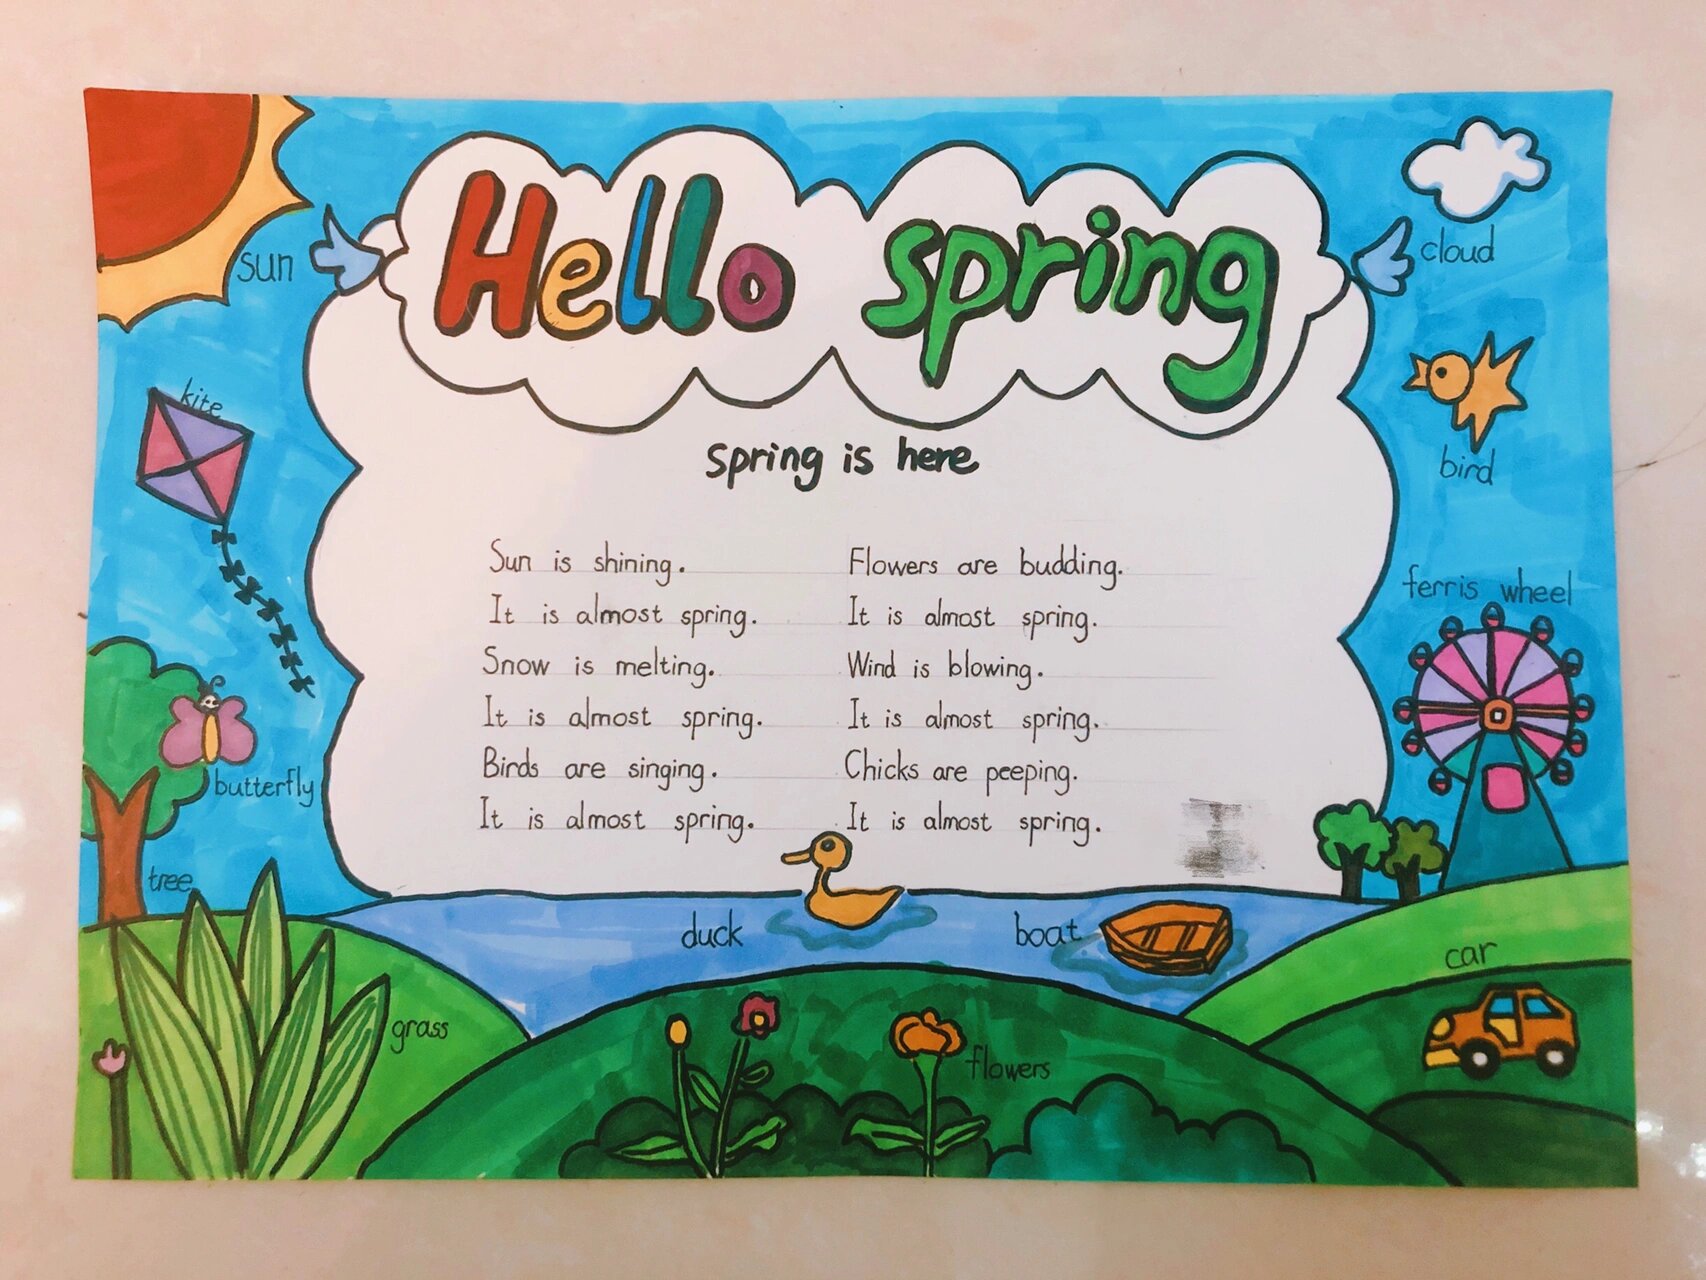 Hello spring
sun
cloud
kite
bird
spring is here
Sun is shining.
It is almost spring.
Snow is melting.
It is almost spring.
Birds are singing.
It is almost spring.
Flowers are budding.
It is almost spring.
Wind is blowing.
It is almost spring.
Chicks are peeping.
It is almost spring.
ferris wheel
butterfly
tree
duck
boat
car
grass
flowers